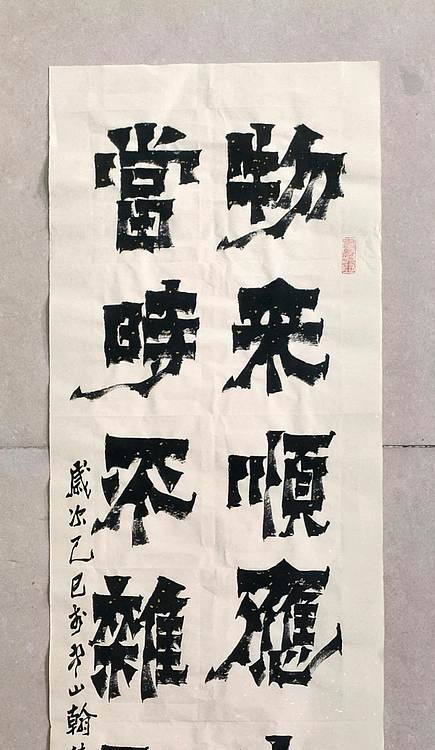 物來順應
當時不雜
歲次乙巳 山翰